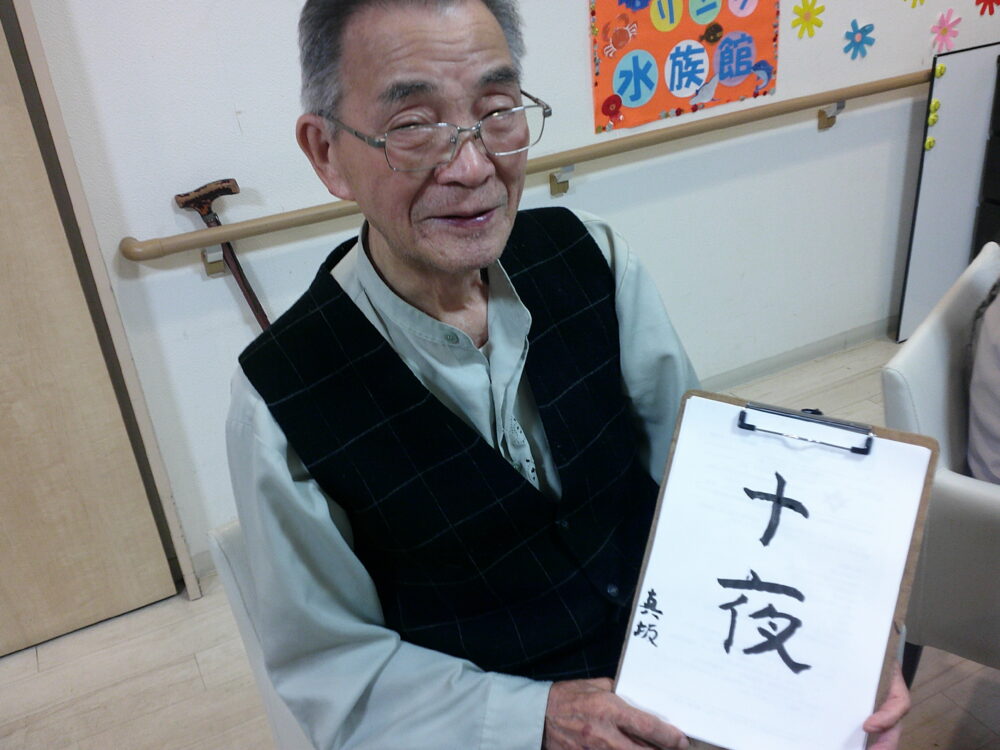 リーナ
水族館
十夜
真坂